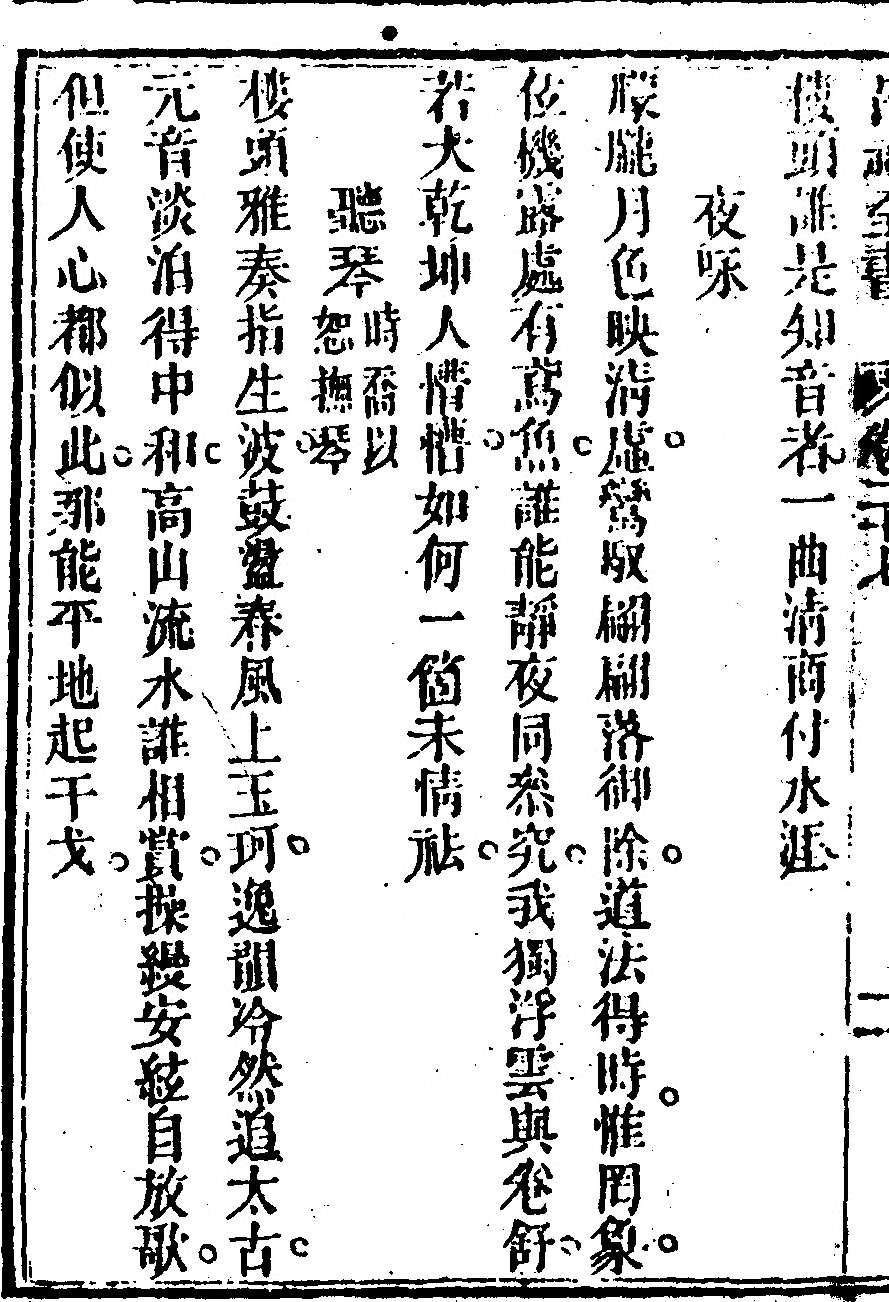 樓頭誰是知音者一曲清商付水涯
夜咏
朦朧月色映清虛鸞馭翩翩落御除道法得時惟罔象
化機露處有鳶魚誰能靜夜同叅究我獨浮雲與卷舒
若大乾坤人懵懵如何一箇未情祛
聽琴時喬以恕撫琴
樓頭雅奏指生波鼓盪春風上玉珂逸韻冷然追太古
元音淡泊得中和高山流水誰相賞操縵安絃自放歌
但使人心都似此那能平地起干戈